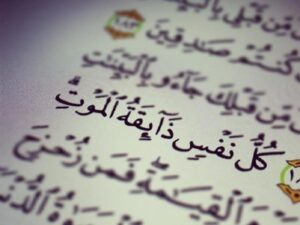 مِّن قَبْلِى بِٱلْبَيِّ
كُنتُمْ صَٰدِقِينَ ١٨٣
مِّن قَبْلِكَ جَآءُو بِٱلْبَيِّنَٰتِ
كُلُّ نَفْسٍ ذَآئِقَةُ ٱلْمَوْتِ
ٱلْقِيَٰمَةِ فَمَن زُحْزِحَ
ٱلدُّنْ